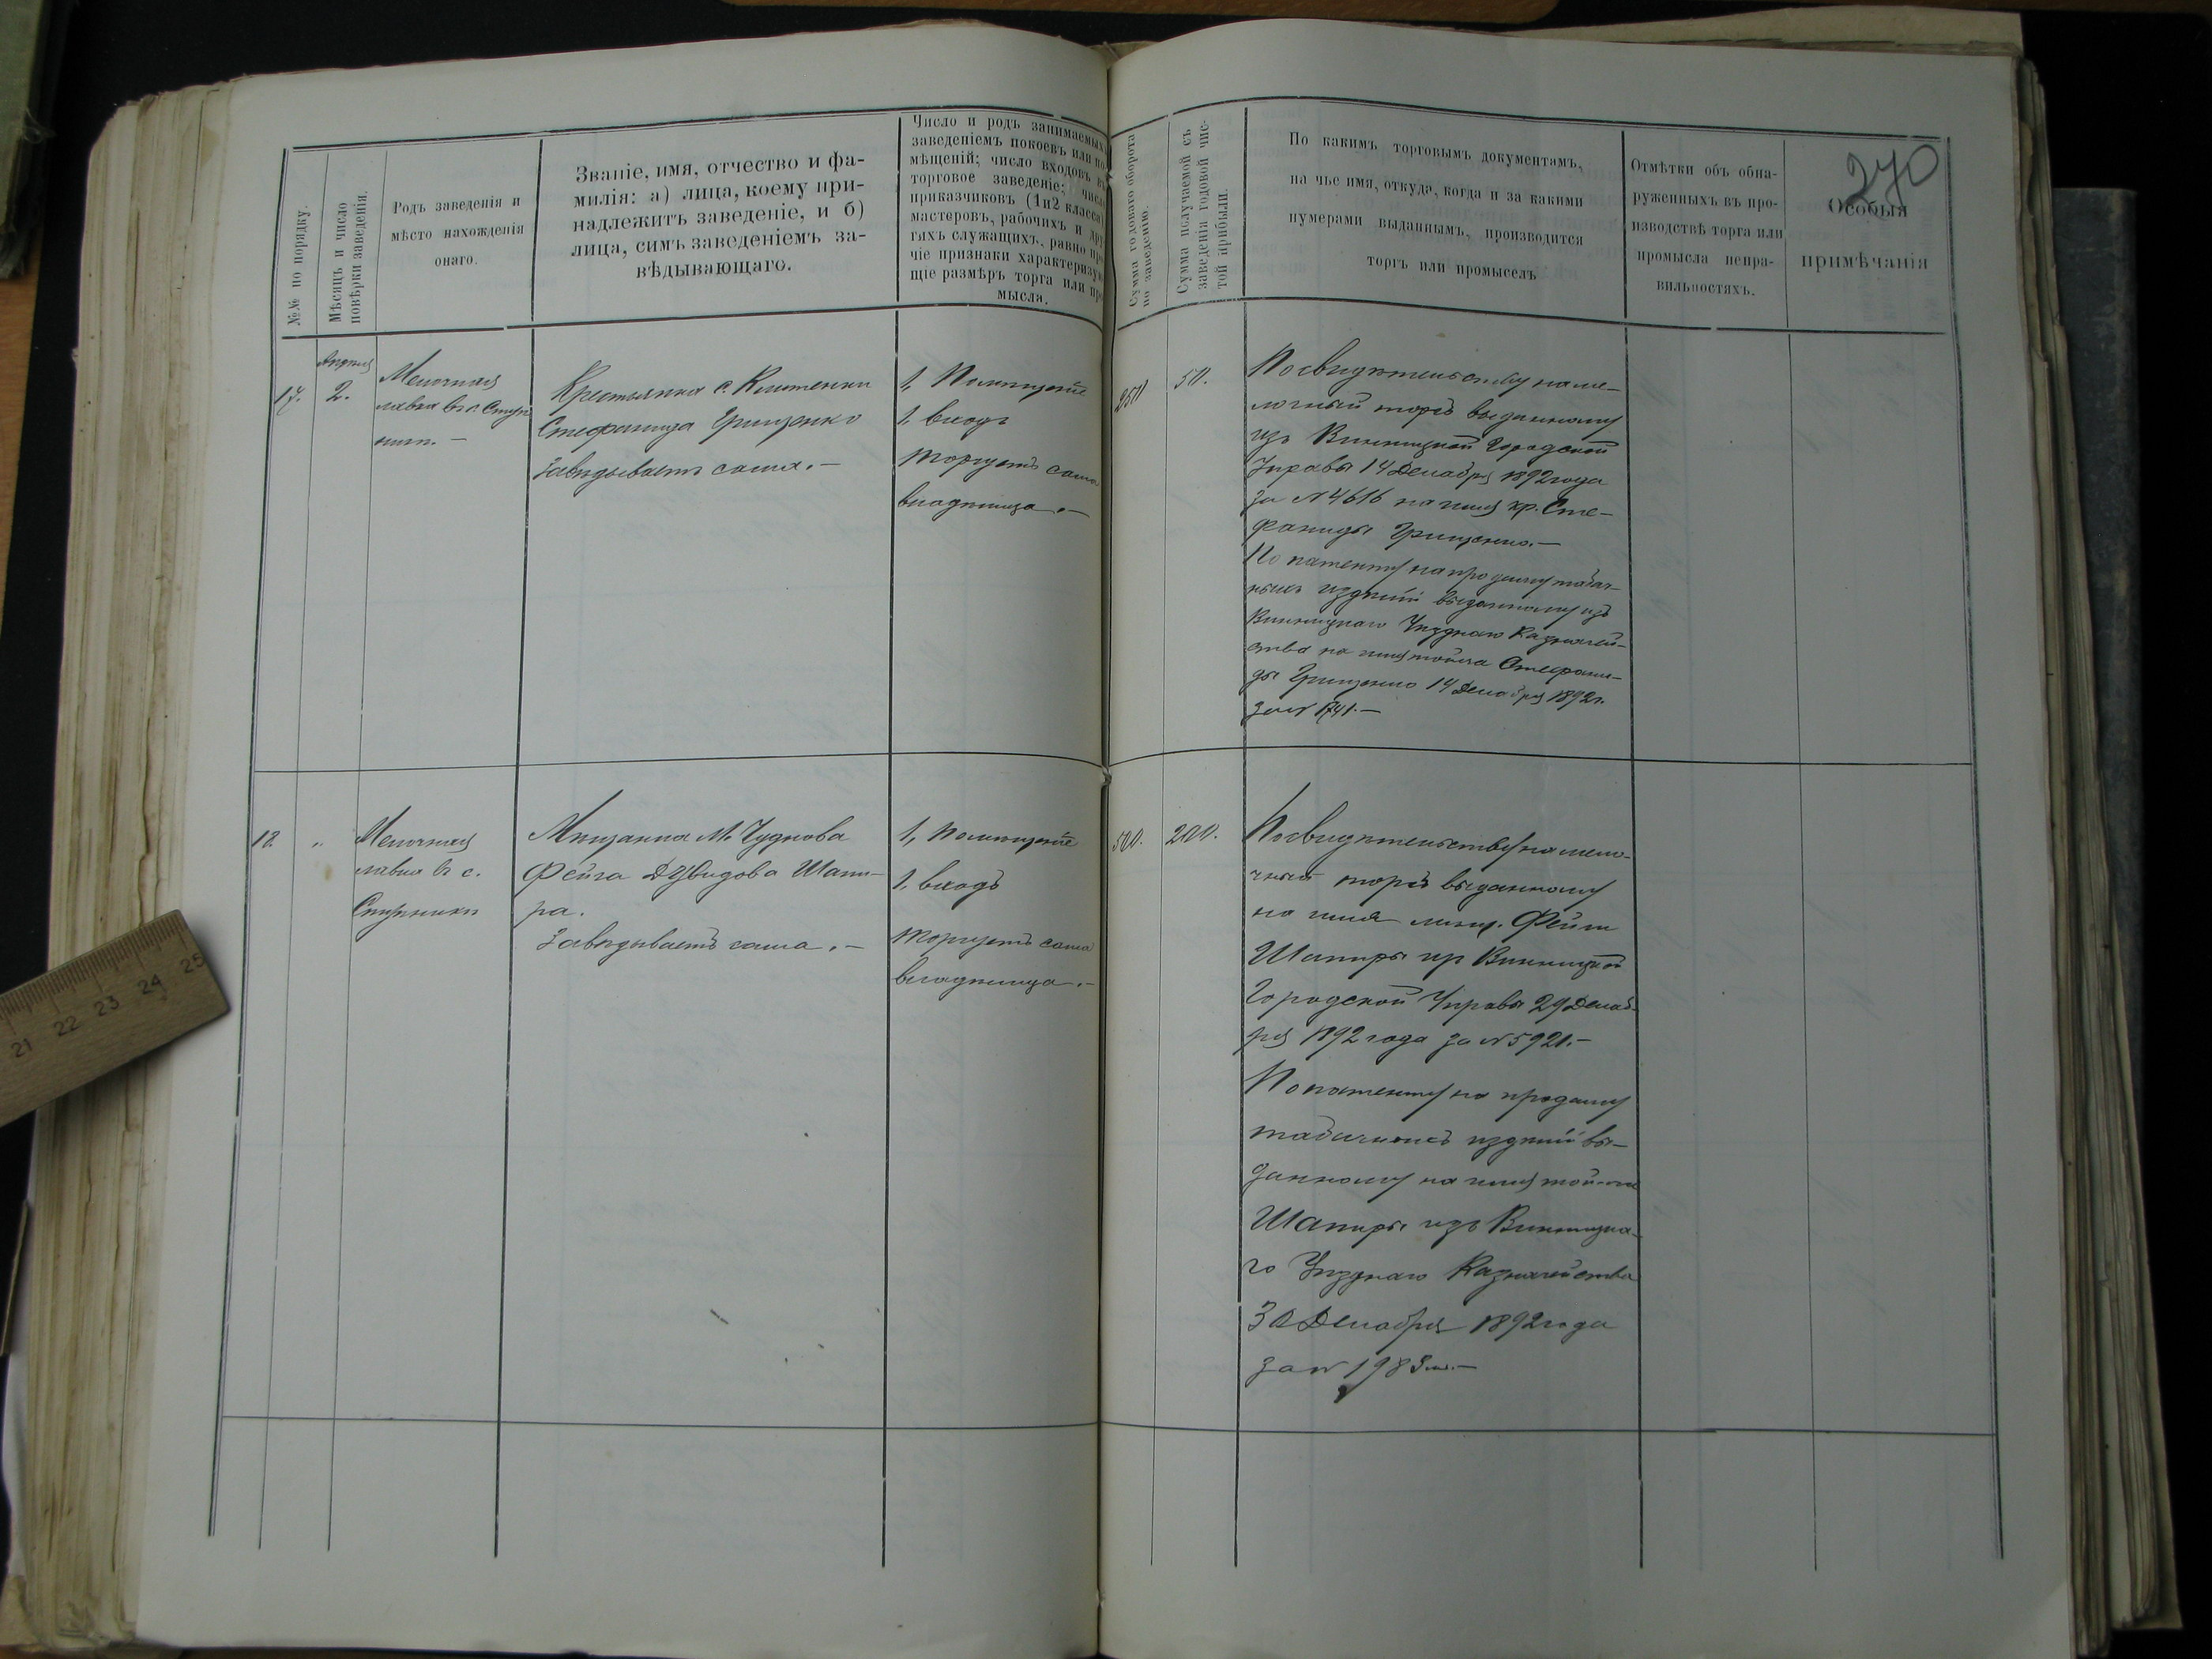 №№ по порядку.
Мѣсяцъ и число
повѣрки заведенія.
Родъ заведенія и
мѣсто нахожденія
онаго.
Званіе, имя, отчество и фа-
милія: а) лица, коему при-
надлежитъ заведеніе, и б)
лица, симъ заведеніемъ за-
вѣдывающаго.
Число и родъ занимаемыхъ
заведеніемъ покоевъ или по
мѣщеній; число входовъ въ
торговое заведеніе; число
приказчиковъ (1и2 класса)
мастеровъ, рабочихъ и дру
гихъ служащихъ, равно про
чіе признаки характеризую
щіе размѣръ торга или про
мысла.
Сумма годоваго оборота
по заведенію.
Сумма получаемой съ
заведенія годовой чис-
той прибыли.
По какимъ торговымъ документамъ,
на чье имя, откуда, когда и за какими
нумерами выданнымъ, производится
торгъ или промыселъ
Отмѣтки объ обна-
руженныхъ въ про-
изводствѣ торга или
промысла непра-
вильностяхъ.
270
Особыя
примѣчанія
17.
Апрѣля
2.
Мелочная
лавка въ с.
Крестьянка с.
Стефанида Грищенко
Завѣдываетъ сама.—
1, Помѣщеніе
1, входъ
Торгуетъ сама
владѣлица.—
250
50.
По свидѣтельству на ме-
лочный торгъ выданному
изъ Винницкой Городской
Управы 14 Декабря 1892 года
за №4616 на имя кр. Сте-
фаниды Грищенко.—
По патенту на продажу табач-
ныхъ издѣлій выданному изъ
Винницкаго Уѣзднаго Казначей-
ства на имя тойже Стефани-
ды Грищенко 14 Декабря 1892 г.
за № 1741.—
18.
"
Мелочная
лавка въ с.
Мѣщанка М. Чуднова
Фейга Дувидова Шапи-
ра.
Завѣдываетъ сама.—
1, Помѣщеніе
1, входъ
Торгуетъ сама
владѣлица.—
500.
200.
По свидѣтельству на мело-
чный торгъ выданному
на имя мѣщ. Фейги
Шапиры Винницкой
Городской Управы 29 Декаб-
ря 1892 года за №5921.—
По патенту на продажу
табачныхъ издѣлій вы-
данному на имя тойже
Шапиры изъ Винницка-
го Уѣзднаго Казначейства
30 Декабря 1892 года
за №
21 22 23 24 25